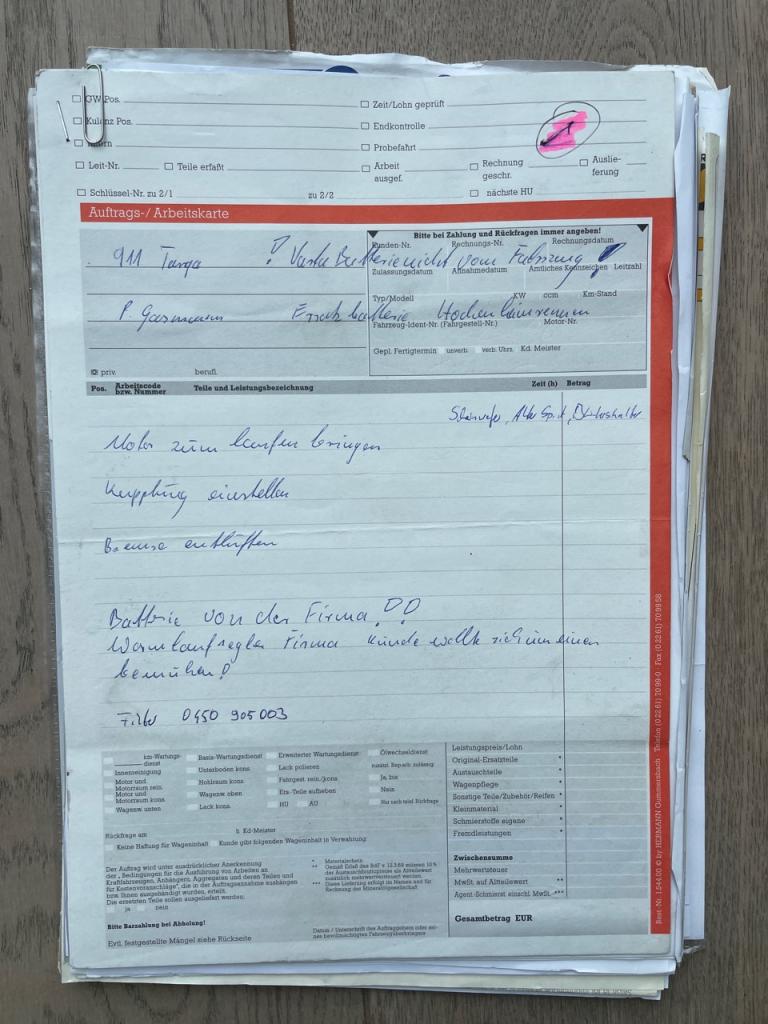 GW Pos.
Zeit/Lohn geprüft
Kulanz Pos.
Endkontrolle
Intern
Probefahrt
Leit-Nr. Teile erfaßt Arbeit ausgef. Rechnung geschr. Auslieferung
Schlüssel-Nr. zu 2/1 zu 2/2 nächste HU
Auftrags-/Arbeitskarte
Bitte bei Zahlung und Rückfragen immer angeben!
Kunden-Nr. Rechnungs-Nr. Rechnungsdatum
911 Targa ! Varta Batterie nicht vom Fahrzeug !
Zulassungsdatum Annahmedatum Amtliches Kennzeichen Leitzahl
Typ/Modell KW ccm Km-Stand
P. Gassmann Ersatzbatterie Hockenheimrennen
Fahrzeug-Ident-Nr. (Fahrgestell-Nr.) Motor-Nr.
Gepl. Fertigtermin unverb. verb. Uhrz. Kd. Meister
priv. berufl.
Pos. Arbeitscode bzw. Nummer Teile und Leistungsbezeichnung Zeit (h) Betrag
Alter Sprit
Motor zum laufen bringen
Kupplung einstellen
Bremse entlüften
Batterie von der Firma !!
Warmlaufregler Firma Kunde wollte sich um einen
bemühen!
Filter 0450 905 003
km-Wartungsdienst Basis-Wartungsdienst Erweiterter Wartungsdienst Ölwechseldienst
Innenreinigung Unterboden kons. Lack polieren zusätzl. Reparat. zulässig:
Motor und Motorraum rein. Hohlraum kons. Fahrgest. rein./kons. Ja, bis
Motor und Motorraum kons. Wagenw. oben Ers.-Teile aufheben Nein
Wagenw. unten Lack kons. HU AU Nur nach telef. Rückfrage
Rückfrage am h Kd-Meister
Keine Haftung für Wageninhalt Kunde gibt folgenden Wageninhalt in Verwahrung:
Der Auftrag wird unter ausdrücklicher Anerkennung
der „Bedingungen für die Ausführung von Arbeiten an
Kraftfahrzeugen, Anhängern, Aggregaten und deren Teilen und
für Kostenvoranschläge", die in der Auftragsannahme aushängen
bzw. Ihnen ausgehändigt wurden, erteilt.
Die ersetzten Teile sollen ausgeliefert werden:
ja nein
Bitte Barzahlung bei Abholung!
Evtl. festgestellte Mängel siehe Rückseite
* Materialschein
** Gemäß Erlaß des BdF v. 12.3.69 müssen 10 %
der Austauschteilumsatzes als Altteilewert
zusätzlich mehrwertversteuert werden.
*** Diese Lieferung erfolgt im Namen und für
Rechnung der Mineralölgesellschaft
Datum / Unterschrift des Auftraggebers oder seines bevollmächtigten Fahrzeugüberbringers
Leistungspreis/Lohn
Original-Ersatzteile *
Austauschteile *
Wagenpflege *
Sonstige Teile/Zubehör/Reifen *
Kleinmaterial *
Schmierstoffe eigene *
Fremdleistungen *
Zwischensumme
Mehrwertsteuer
MwSt. auf Altteilewert **
Agent.-Schmierst. einschl. MwSt. ***
Gesamtbetrag EUR
Best.-Nr. 1.544.00 © by HERMANN Gummersbach Telefon (0 22 61) 70 99-0 Fax (0 22 61) 70 99 58